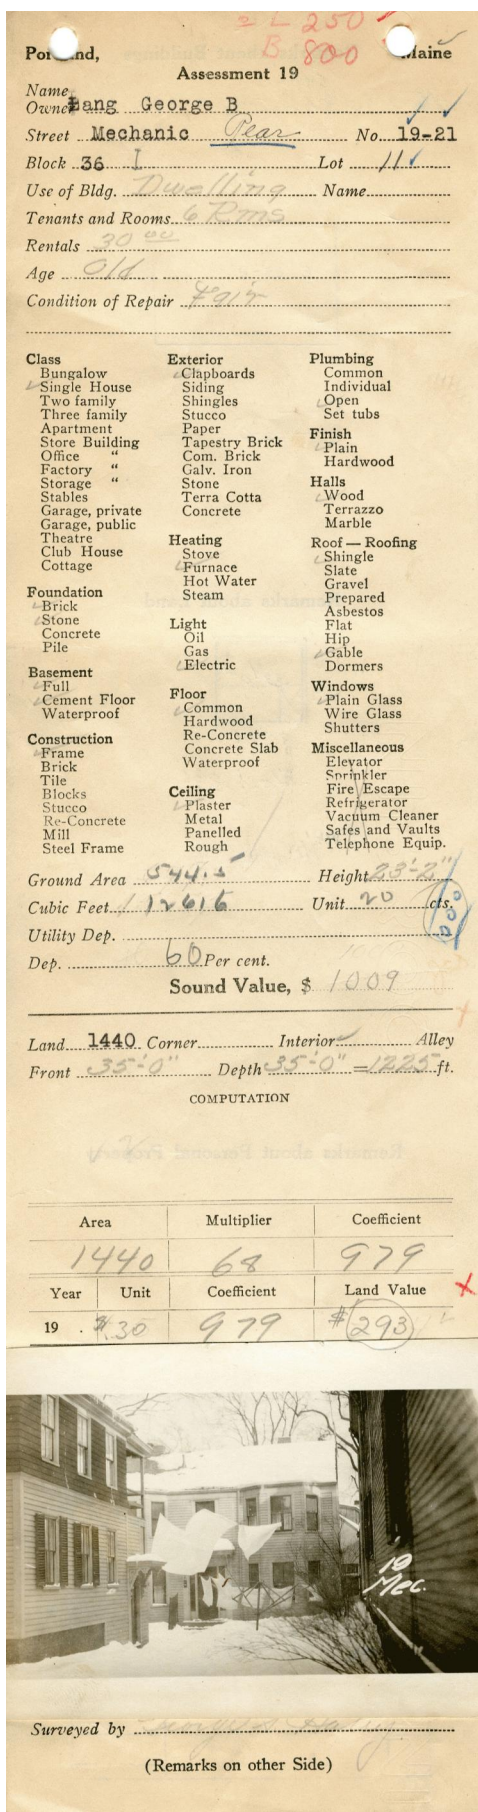 L 250
B 800
Portland, Maine
Assessment 19
Name
Owner Lang George B
Street Mechanic Pear No. 19-21
Block 36 Lot 11
Use of Bldg. Dwelling Name
Tenants and Rooms 6 Rms
Rentals 30 00
Age Old
Condition of Repair Fair
Class
Bungalow
Single House
Two family
Three family
Apartment
Store Building
Office "
Factory "
Storage "
Stables
Garage, private
Garage, public
Theatre
Club House
Cottage
Foundation
Brick
Stone
Concrete
Pile
Basement
Full
Cement Floor
Waterproof
Construction
Frame
Brick
Tile
Blocks
Stucco
Re-Concrete
Mill
Steel Frame
Exterior
Clapboards
Siding
Shingles
Stucco
Paper
Tapestry Brick
Com. Brick
Galv. Iron
Stone
Terra Cotta
Concrete
Heating
Stove
Furnace
Hot Water
Steam
Light
Oil
Gas
Electric
Floor
Common
Hardwood
Re-Concrete
Concrete Slab
Waterproof
Ceiling
Plaster
Metal
Panelled
Rough
Plumbing
Common
Individual
Open
Set tubs
Finish
Plain
Hardwood
Halls
Wood
Terrazzo
Marble
Roof — Roofing
Shingle
Slate
Gravel
Prepared
Asbestos
Flat
Hip
Gable
Dormers
Windows
Plain Glass
Wire Glass
Shutters
Miscellaneous
Elevator
Sprinkler
Fire Escape
Refrigerator
Vacuum Cleaner
Safes and Vaults
Telephone Equip.
Ground Area 544.5 Height 23'-2"
Cubic Feet 12616 Unit 20 cts.
Utility Dep.
Dep. 60 Per cent.
Sound Value, $ 1009
Land 1440 Corner Interior Alley
Front 35'-0" Depth 35'-0" = 1225 ft.
COMPUTATION
Area Multiplier Coefficient
1440 68 979
Year Unit Coefficient Land Value
19 $.30 979 $293
19
Mec.
Surveyed by
(Remarks on other Side)